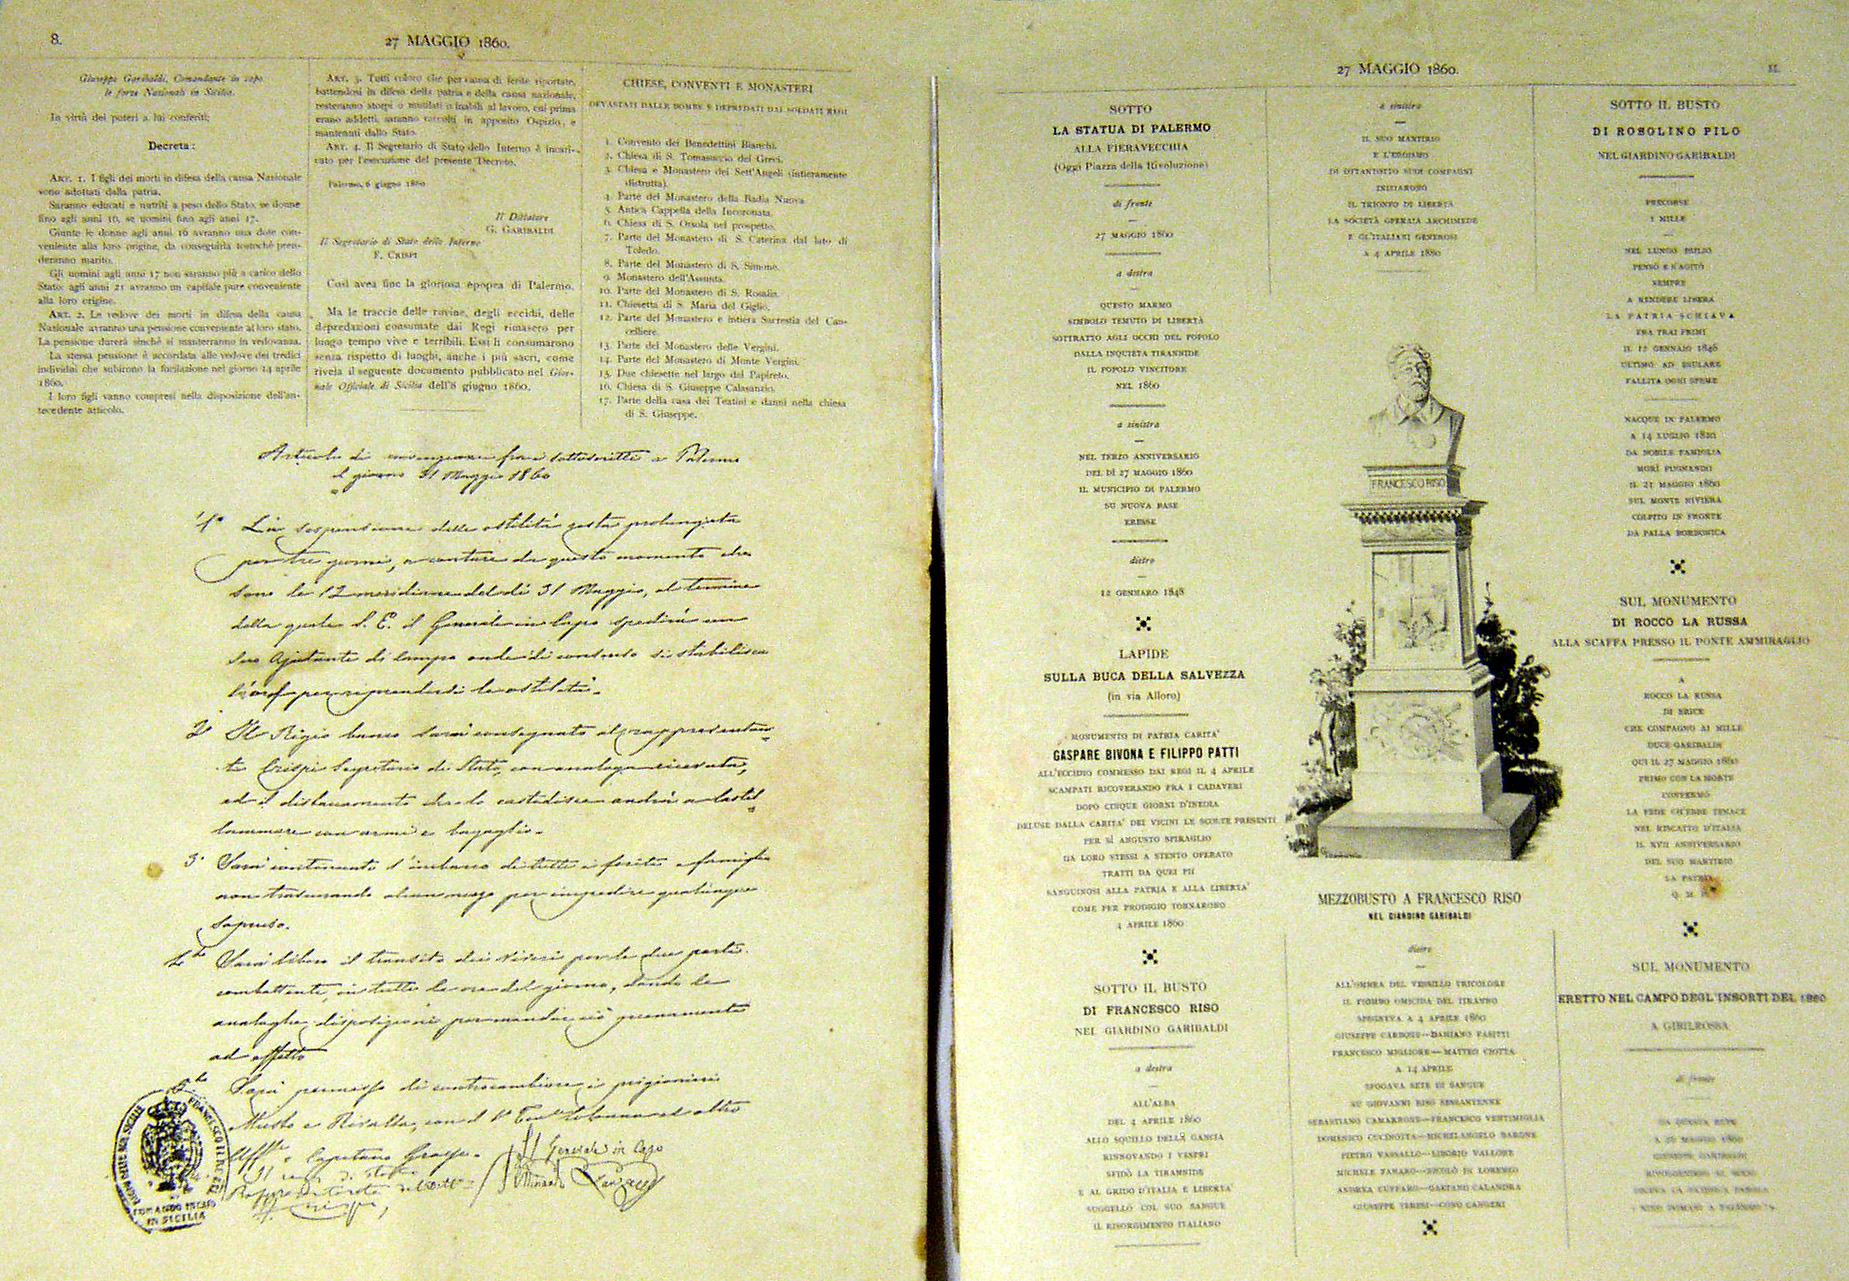 8.
27 MAGGIO 1860.
Giuseppe Garibaldi, Comandante in capo
le forze Nazionali in Sicilia.
In virtù dei poteri a lui conferiti;
Decreta:
ART. 1. I figli dei morti in difesa della causa Nazionale
sono adottati dalla patria.
Saranno educati e nutriti a peso dello Stato, se donne
fino agli anni 16, se uomini fino agli anni 17.
Giunte le donne agli anni 16 avranno una dote con-
veniente alla loro origine, da conseguirla tostochè pren-
deranno marito.
Gli uomini agli anni 17 non saranno più a carico dello
Stato: agli anni 21 avranno un capitale pure conveniente
alla loro origine.
ART. 2. Le vedove dei morti in difesa della causa
Nazionale avranno una pensione conveniente al loro stato.
La pensione durerà sinchè si manterranno in vedovanza.
La stessa pensione è accordata alle vedove dei tredici
individui che subirono la fucilazione nel giorno 14 aprile
1860.
I loro figli vanno compresi nella disposizione dell'an-
tecedente articolo.
ART. 3. Tutti coloro che per causa di ferite riportate,
battendosi in difesa della patria e della causa nazionale,
resteranno storpi o mutilati o inabili al lavoro, cui prima
erano addetti, saranno raccolti in apposito Ospizio, e
mantenuti dallo Stato.
ART. 4. Il Segretario di Stato dello Interno è incari-
cato per l'esecuzione del presente Decreto.
Palermo, 6 giugno 1860
Il Dittatore
G. GARIBALDI
Il Segretario di Stato dello Interno
F. CRISPI
Così avea fine la gloriosa epopea di Palermo.
Ma le traccie delle rovine, degli eccidi, delle
depredazioni consumate dai Regi rimasero per
lungo tempo vive e terribili. Essi li consumarono
senza rispetto di luoghi, anche i più sacri, come
rivela il seguente documento pubblicato nel Gior-
nale Officiale di Sicilia dell'8 giugno 1860.
CHIESE, CONVENTI E MONASTERI
DEVASTATI DALLE BOMBE E DEPREDATI DAI SOLDATI REGI
1. Convento dei Benedettini Bianchi.
2. Chiesa di S. Tomasuccio dei Greci.
3. Chiesa e Monastero dei Sett'Angeli (intieramente
distrutta).
4. Parte del Monastero della Badia Nuova.
5. Antica Cappella della Incoronata.
6. Chiesa di S. Orsola nel prospetto.
7. Parte del Monastero di S. Caterina dal lato di
Toledo.
8. Parte del Monastero di S. Simone.
9. Monastero dell'Assunta.
10. Parte del Monastero di S. Rosalia.
11. Chiesetta di S. Maria del Giglio.
12. Parte del Monastero e intiera Sacrestia del Can-
celliere.
13. Parte del Monastero delle Vergini.
14. Parte del Monastero di Monte Vergini.
15. Due chiesette nel largo del Papireto.
16. Chiesa di S. Giuseppe Calasanzio.
17. Parte della casa dei Teatini e danni nella chiesa
di S. Giuseppe.
Articolo di convenzione fra i sottoscritti a Palermo
il giorno 31 Maggio 1860
1° La sospensione delle ostilità resta prolungata
per tre giorni, a contare da questo momento che
sono le 12 meridiane del dì 31 Maggio, al termine
della quale S. E. il Generale in Capo spedirà un
suo Ajutante di Campo onde di consenso si stabilisca
l'ora per riprendersi le ostilità.
2° Il Regio banco sarà consegnato al rappresentan-
te Crispi Segretario di Stato, con analoga ricevuta,
ed il distaccamento che lo custodisce andrà a Castel-
lammare con armi e bagaglio.
3° Sarà continuato l'imbarco di tutti i feriti e famiglie
non trascurando alcun mezzo per impedire qualunque
sopruso.
4° Sarà libero il transito dei viveri per le due parti
combattenti, in tutte le ore del giorno, dando le
analoghe disposizioni per mandar ciò pienamente
ad effetto
5° Sarà permesso di contraccambiare i prigionieri
Musto e Rivalta, con il 1° Ten. Colonna ed altro
Uff. o Capitano Grasso.
Il Generale in Capo
Ferdinando Lanza
F. Crispi
COMANDO IN CAPO
IN SICILIA
27 MAGGIO 1860.
SOTTO
LA STATUA DI PALERMO
ALLA FIERAVECCHIA
(Oggi Piazza della Rivoluzione)
di fronte
27 MAGGIO 1860
a destra
QUESTO MARMO
SIMBOLO TEMUTO DI LIBERTÀ
SOTTRATTO AGLI OCCHI DEL POPOLO
DALLA INQUIETA TIRANNIDE
IL POPOLO VINCITORE
NEL 1860
a sinistra
NEL TERZO ANNIVERSARIO
DEL DÌ 27 MAGGIO 1860
IL MUNICIPIO DI PALERMO
SU NUOVA BASE
ERESSE
dietro
12 GENNARO 1848
LAPIDE
SULLA BUCA DELLA SALVEZZA
(in via Alloro)
MONUMENTO DI PATRIA CARITA'
GASPARE BIVONA E FILIPPO PATTI
ALL'ECCIDIO COMMESSO DAI REGI IL 4 APRILE
SCAMPATI RICOVERANDO FRA I CADAVERI
DOPO CINQUE GIORNI D'INEDIA
DELUSE DALLA CARITA' DEI VICINI LE SCOLTE PRESENTI
PER SÌ ANGUSTO SPIRAGLIO
DA LORO STESSI A STENTO OPERATO
TRATTI DA QUEI PII
SANGUINOSI ALLA PATRIA E ALLA LIBERTA'
COME PER PRODIGIO TORNARONO
4 APRILE 1860
SOTTO IL BUSTO
DI FRANCESCO RISO
NEL GIARDINO GARIBALDI
a destra
ALL'ALBA
DEL 4 APRILE 1860
ALLO SQUILLO DELLA GANCIA
RINNOVANDO I VESPRI
SFIDÒ LA TIRANNIDE
E AL GRIDO D'ITALIA E LIBERTA'
SUGGELLÒ COL SUO SANGUE
IL RISORGIMENTO ITALIANO
a sinistra
IL SUO MARTIRIO
E L'EROISMO
DI OTTANTOTTO SUOI COMPAGNI
INIZIARONO
IL TRIONFO DI LIBERTÀ
LA SOCIETÀ OPERAIA ARCHIMEDE
E GL'ITALIANI GENEROSI
A 4 APRILE 1880
FRANCESCO RISO
MEZZOBUSTO A FRANCESCO RISO
NEL GIARDINO GARIBALDI
dietro
ALL'OMBRA DEL VESSILLO TRICOLORE
IL PIOMBO OMICIDA DEL TIRANNO
SPEGNEVA A 4 APRILE 1860
GIUSEPPE CARDOSI—DAMIANO FASITTI
FRANCESCO MIGLIORE—MATTEO CIOTTA
A 14 APRILE
SFOGAVA SETE DI SANGUE
SU GIOVANNI RISO SESSANTENNE
SEBASTIANO CAMARRONE—FRANCESCO VENTIMIGLIA
DOMENICO CUCINOTTA—MICHELANGELO BARONE
PIETRO VASSALLO—LIBORIO VALLONE
MICHELE FANARO—NICOLÒ DI LORENZO
ANDREA CUFFARO—GAETANO CALANDRA
GIUSEPPE TERESI—CONO CANGERI
SOTTO IL BUSTO
DI ROSOLINO PILO
NEL GIARDINO GARIBALDI
PRECORSE
I MILLE
NEL LUNGO ESILIO
PENSÒ E S'AGITÒ
SEMPRE
A RENDERE LIBERA
LA PATRIA SCHIAVA
FRA TRAI PRIMI
IL 12 GENNAIO 1848
ULTIMO AD ESULARE
FALLITA OGNI SPEME
NACQUE IN PALERMO
A 14 LUGLIO 1820
DA NOBILE FAMIGLIA
MORÌ PUGNANDO
IL 21 MAGGIO 1860
SUL MONTE NIVIERA
COLPITO IN FRONTE
DA PALLA BORBONICA
SUL MONUMENTO
DI ROCCO LA RUSSA
ALLA SCAFFA PRESSO IL PONTE AMMIRAGLIO
A
ROCCO LA RUSSA
DI ERICE
CHE COMPAGNO AI MILLE
DUCE GARIBALDI
QUI IL 27 MAGGIO 1860
PRIMO CON LA MORTE
CONFERMÒ
LA FEDE CH'EBBE TENACE
NEL RISCATTO D'ITALIA
IL XVII ANNIVERSARIO
DEL SUO MARTIRIO
LA PATRIA
Q. M. P.
SUL MONUMENTO
ERETTO NEL CAMPO DEGL'INSORTI DEL 1860
A GIBILROSSA
di fronte
A 26 MAGGIO 1860
GIUSEPPE GARIBALDI